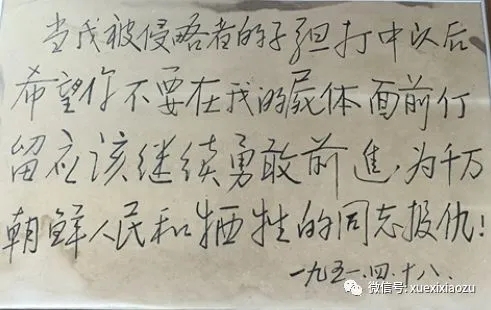 当我被侵略者的子弹打中以后
希望你不要在我的尸体面前停
留应该继续勇敢前進,为千万
朝鲜人民和牺牲的同志报仇!
一九五一.四.十八.
微信号: xuexixiaozu